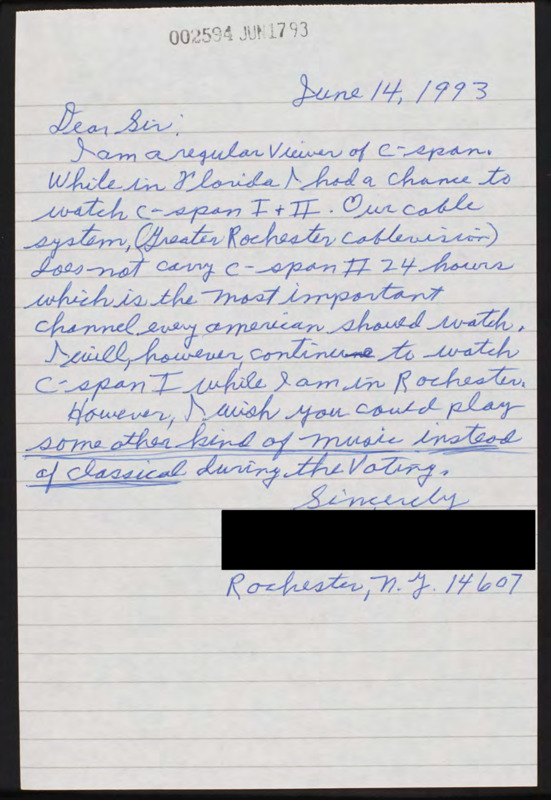 002594 JUN1793
June 14, 1993
Dear Sir:
I am a regular Viewer of C-span.
While in Florida I had a chance to
watch C-span I + II. Our cable
system, (Greater Rochester cablevision)
does not carry C-span II 24 hours
which is the most important
channel every american should watch.
I will, however, continue to watch
C-span I while I am in Rochester.
However, I wish you could play
some other kind of music instead
of classical during the Voting.
Sincerely
Rochester, N.Y. 14607